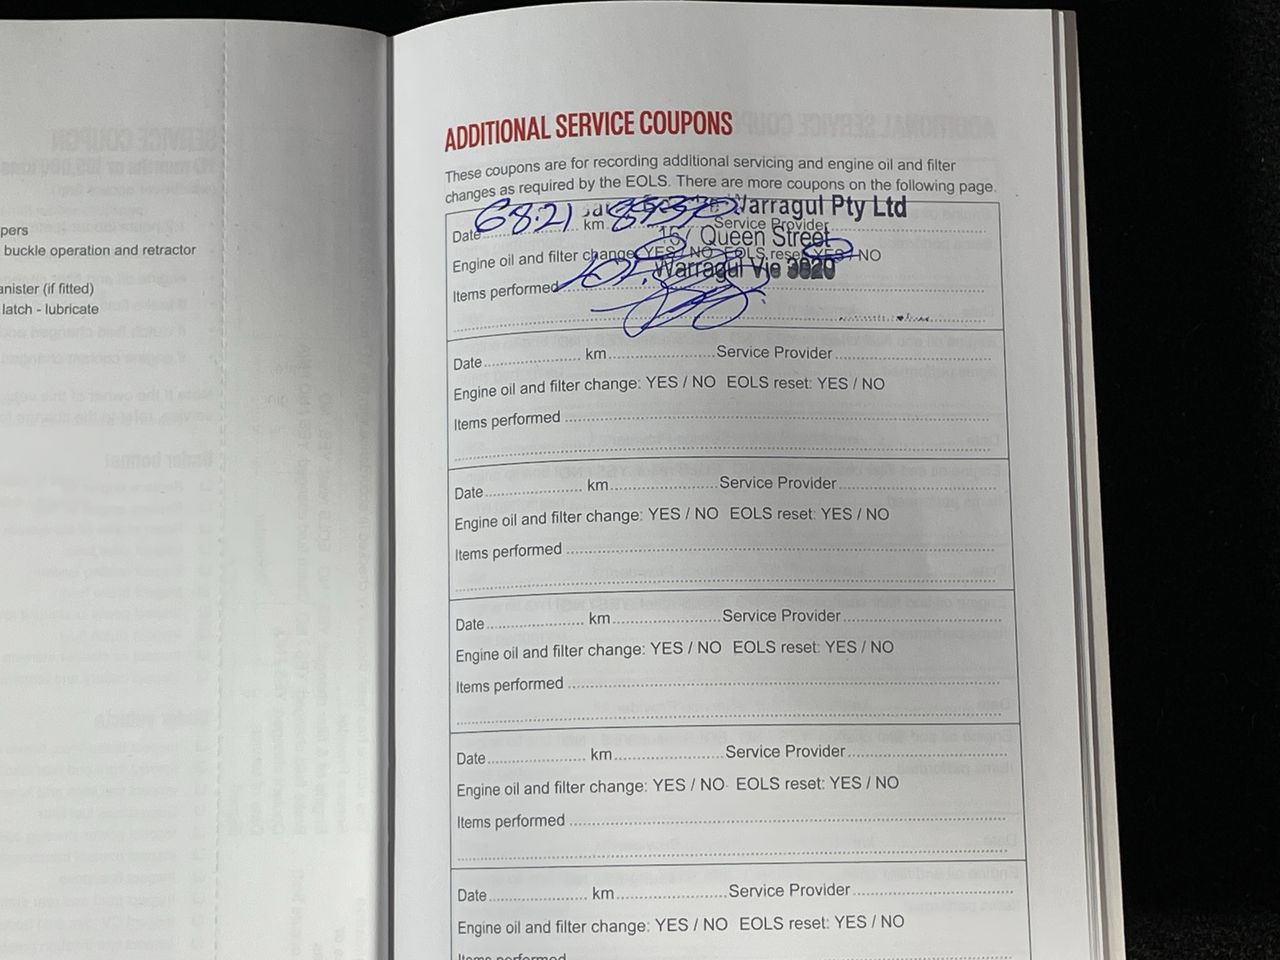 pers
buckle operation and retractor
anister (if fitted)
latch - lubricate
ADDITIONAL SERVICE COUPONS
These coupons are for recording additional servicing and engine oil and filter
changes as required by the EOLS. There are more coupons on the following page.
Warragul Pty Ltd
Date 6.8.21 km Service Provider
Queen Street
Engine oil and filter change: YES / NO EOLS reset: YES / NO
Warragul Vic 3820
Items performed
Date km Service Provider
Engine oil and filter change: YES / NO EOLS reset: YES / NO
Items performed
Date km Service Provider
Engine oil and filter change: YES / NO EOLS reset: YES / NO
Items performed
Date km Service Provider
Engine oil and filter change: YES / NO EOLS reset: YES / NO
Items performed
Date km Service Provider
Engine oil and filter change: YES / NO EOLS reset: YES / NO
Items performed
Date km Service Provider
Engine oil and filter change: YES / NO EOLS reset: YES / NO
Items performed